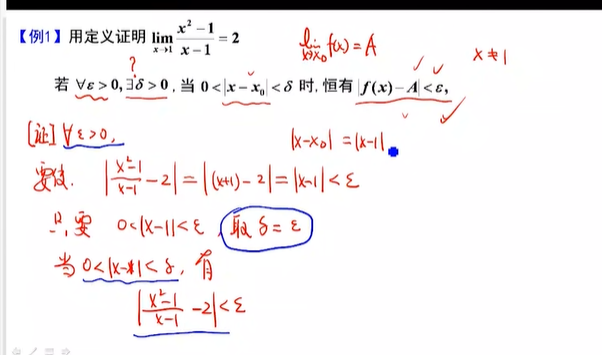 【例1】用定义证明 lim_{x→1} (x²-1)/(x-1) = 2
lim_{x→x₀} f(x) = A
x≠1
?
若 ∀ε>0,∃δ>0,当 0<|x-x₀|<δ 时,恒有|f(x)-A|<ε,
[证] ∀ε>0,
|x-x₀| = |x-1|
要使 |(x²-1)/(x-1) - 2| = |(x+1)-2| = |x-1| < ε
只要 0<|x-1|<ε, 取 δ=ε
当 0<|x-1|<δ, 有
|(x²-1)/(x-1) - 2| < ε